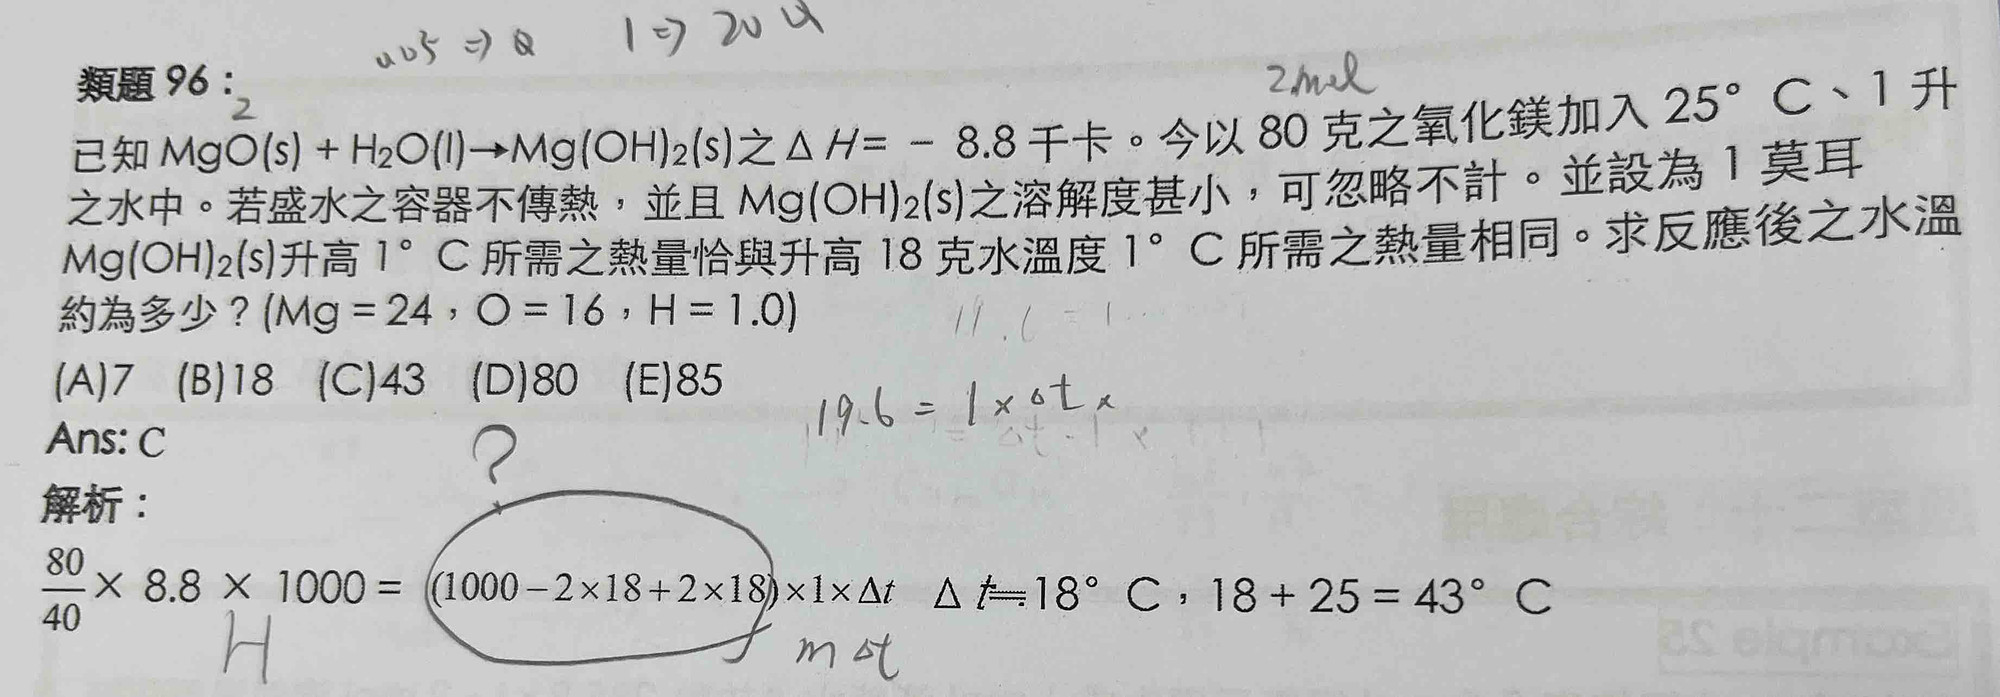 1 ⇒ 20
類題 96：
2
2mol
已知 MgO(s) + H₂O(l)→Mg(OH)₂(s)之 Δ H= － 8.8 千卡。今以 80 克之氧化鎂加入 25° C、1 升
之水中。若盛水之容器不傳熱，並且 Mg(OH)₂(s)之溶解度甚小，可忽略不計。並設為 1 莫耳
Mg(OH)₂(s)升高 1° C 所需之熱量恰與升高 18 克水溫度 1° C 所需之熱量相同。求反應後之水溫
約為多少？(Mg = 24，O = 16，H = 1.0)
(A)7 (B)18 (C)43 (D)80 (E)85
19.6 = 1 × Δt ×
Ans: C
?
解析：
80/40 × 8.8 × 1000 = (1000−2×18+2×18)×1×Δt Δ t≒18° C，18 + 25 = 43° C
H m Δt